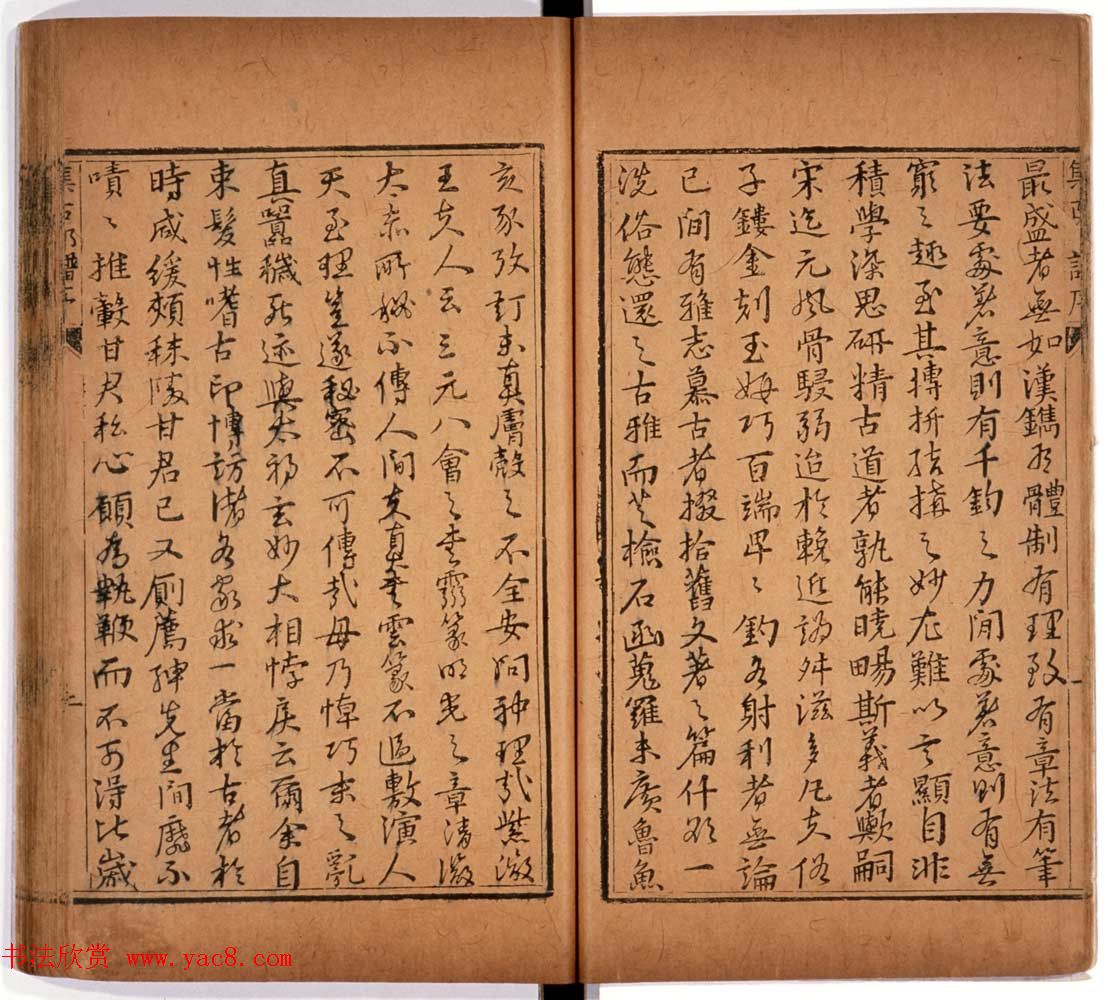 最盛者無如漢鐫有體制有理致有章法有筆
法要處著意則有千鈞之力閒處著意則有無
窮之趣至其摶拚結搆之妙尤難以言顯自非
積學深思研精古道者孰能曉暢斯義者歟嗣
宋迄元風骨駸弱迨於輓近譌舛滋多凡夫俗
子鏤金刻玉每巧百端卑卑釣名射利者無論
已間有雅志慕古者掇拾舊文著之篇什欲一
洗俗態還之古雅而芝檢石函蒐羅未廣魯魚
亥豕攷訂未真膚殼之不全安問神理哉紫微
王夫人云三元八會之書龍篆明光之章清微
太素所秘不傳人間夫真書雲篆不過敷演人
天至理豈遂秘密不可傳哉毋乃悼巧末之亂
真囂穢死迹與太初玄妙大相悖戾云爾余自
束髮性嗜古印博訪諸名家求一當於古者於
時咸緩頰秣陵甘君已又廁薦紳先生間靡不
嘖嘖推轂甘君私心願為執鞭而不可得比歲
书法欣赏 www.yac8.com